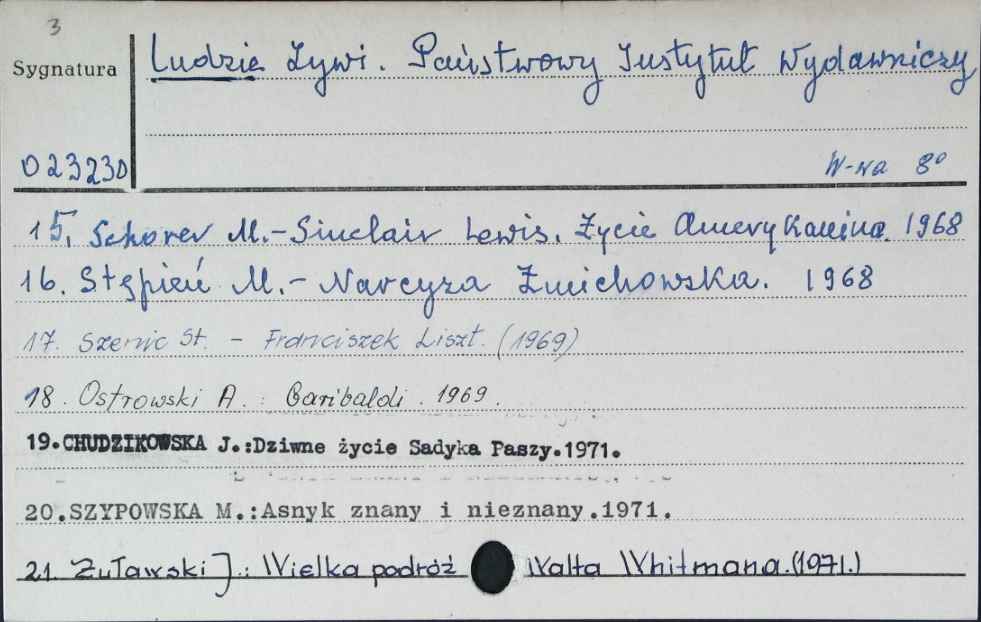 3
Sygnatura
Ludzie Żywi. Państwowy Instytut Wydawniczy
023230
W-wa 8°
15. Schorer M.-Sinclair Lewis. Życie Amerykanina. 1968
16. Stępień M.- Narcyza Żmichowska. 1968
17. Szenic St. - Franciszek Liszt. (1969)
18. Ostrowski A.: Garibaldi. 1969.
19.CHUDZIKOWSKA J.:Dziwne życie Sadyka Paszy.1971.
20.SZYPOWSKA M.:Asnyk znany i nieznany.1971.
21. Żuławski J.: Wielka podróż Walta Whitmana.(1971.)